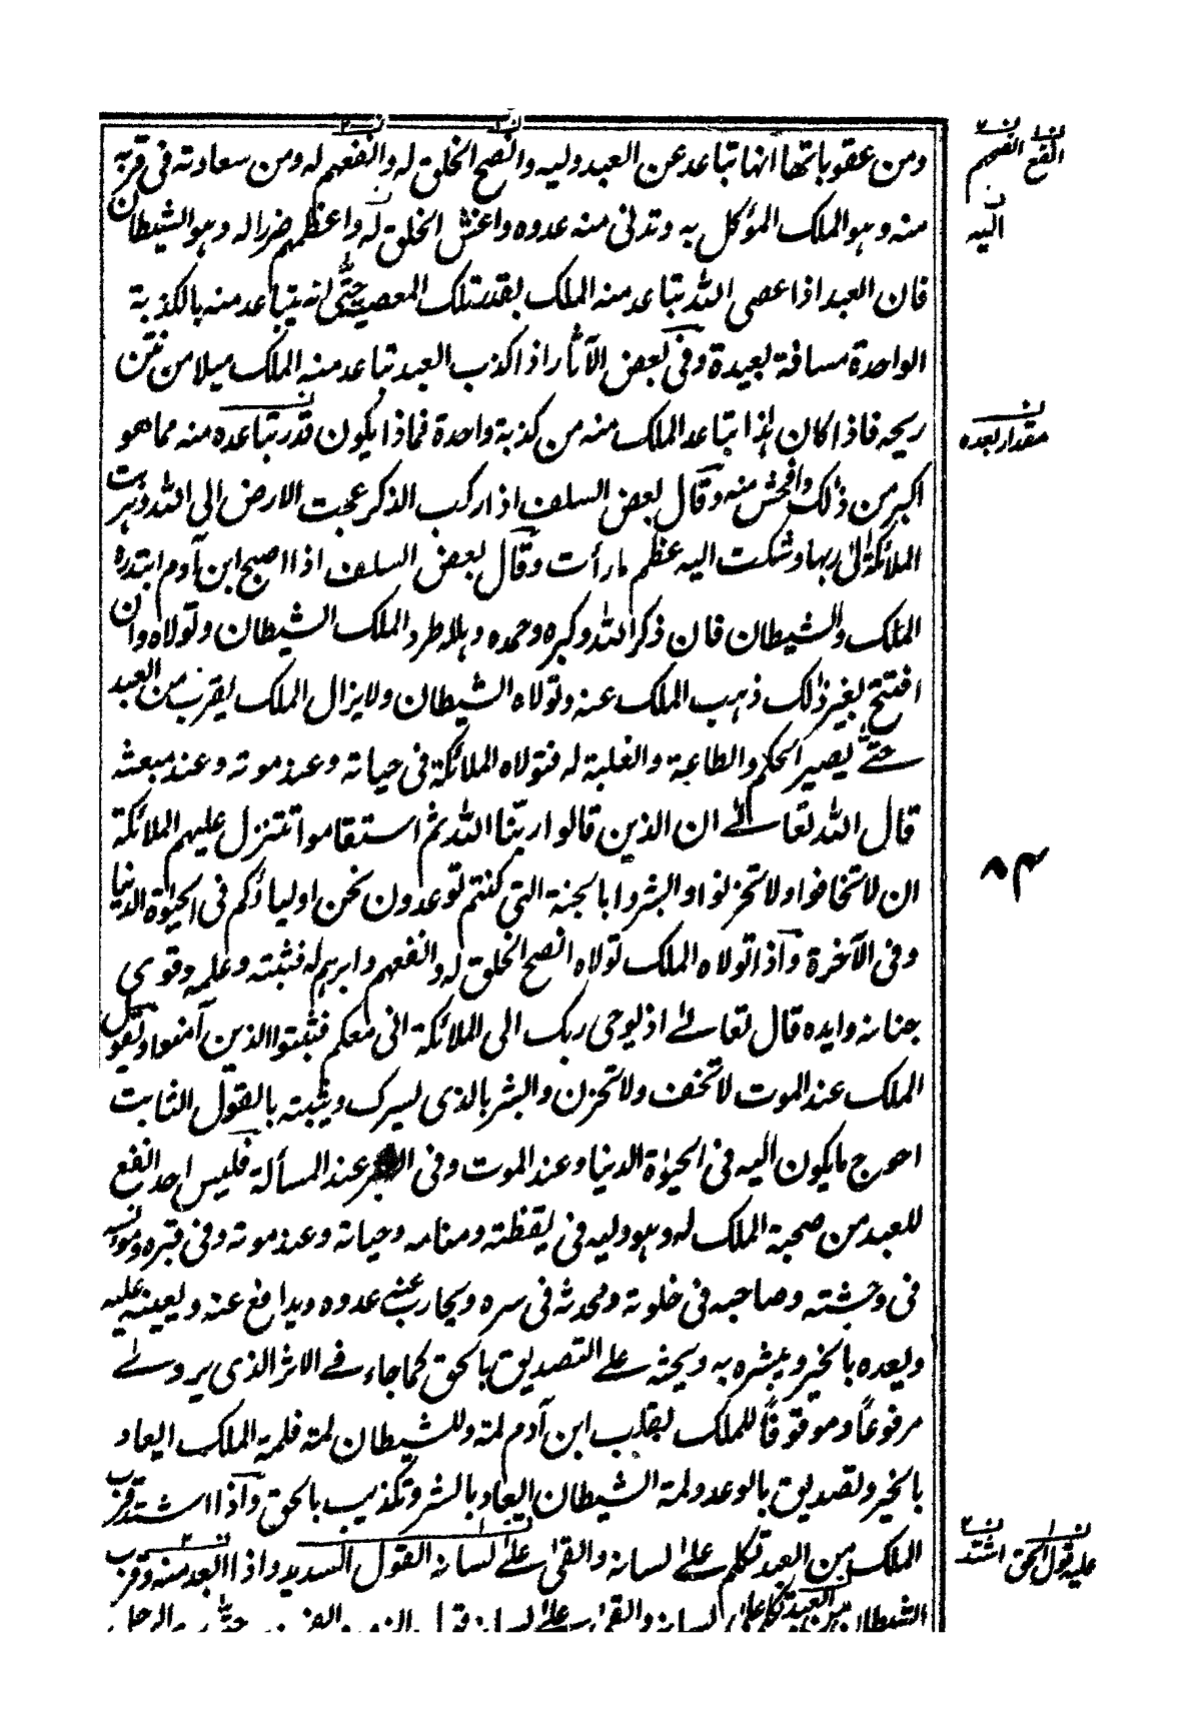 ومن عقوباتها انها تباعد عن العبد وليه وانصح الخلق له وانفعهم له ومن سعادته فى قربه
منه وهو الملك المؤكل به وتدنى منه عدوه واغش الخلق له واعظمهم ضررا له وهو الشيطان
فان العبد اذا عصى الله تباعد منه الملك بقدر تلك المعصية حتى انه يتباعد منه بالكذبة
الواحدة مسافة بعيدة وفى بعض الآثار اذا كذب العبد تباعد منه الملك ميلا من نتن
ريحه فاذا كان هذا تباعد الملك منه من كذبة واحدة فماذا يكون قدر تباعده منه مما هو
اكبر من ذلك وافحش منه وقال بعض السلف اذا ركب الذكر عجت الارض الى الله وهربت
الملائكة الى ربها وشكت اليه عظم ما رأت وقال بعض السلف اذا اصبح ابن آدم ابتدره
الملك والشيطان فان ذكر الله وكبره وحمده وهلله طرد الملك الشيطان وتولاه وان
افتتح بغير ذلك ذهب الملك عنه وتولاه الشيطان ولا يزال الملك يقرب من العبد
حتى يصير الحكم والطاعة والغلبة له فتولاه الملائكة فى حياته وعند موته وعند مبعثه
قال الله تعالى ان الذين قالوا ربنا الله ثم استقاموا تتنزل عليهم الملائكة
ان لا تخافوا ولا تحزنوا وابشروا بالجنة التى كنتم توعدون نحن اولياؤكم فى الحيوة الدنيا
وفى الآخرة واذا تولاه الملك تولاه انصح الخلق له وانفعهم وابرهم له فثبته وعلمه وقوى
جنانه وايده قال تعالى اذ يوحى ربك الى الملائكة انى معكم فثبتوا الذين آمنوا ويقول
الملك عند الموت لا تخف ولا تحزن وابشر بالذى يسرك ويثبته بالقول الثابت
احوج ما يكون اليه فى الحيوة الدنيا وعند الموت وفى القبر عند المسألة فليس احد انفع
للعبد من صحبة الملك له وهو وليه فى يقظته ومنامه وحياته وعند موته وفى قبره ومونسه
فى وحشته وصاحبه فى خلوته ومحدثه فى سره ويحارب عنه عدوه ويدافع عنه ويعينه عليه
ويعده بالخير ويبشره به ويحثه على التصديق بالحق كما جاء فى الاثر الذى يروى
مرفوعاً وموقوفاً للملك بقلب ابن آدم لمة وللشيطان لمة فلمة الملك ايعاد
بالخير وتصديق بالوعد ولمة الشيطان ايعاد بالشر وتكذيب بالحق واذا اشتد قرب
الملك من العبد تكلم على لسانه والقى على لسانه القول السديد واذا ابعد منه وقرب
الشيطان من العبد تكلم على لسانه والقى على لسانه قول الزور والفحش حتى يرى الرجل
انفع انفعهم
اليه
مقدار بعده
٥٤
عليه قول الحق اشتد